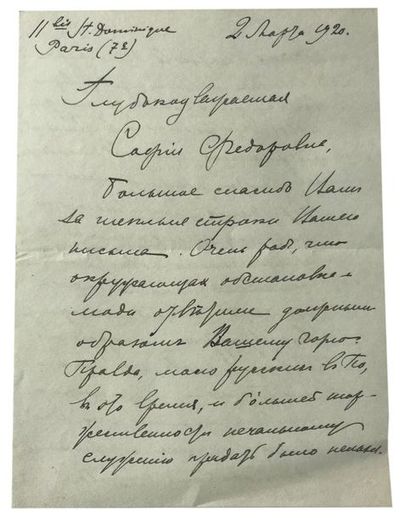 11 bis St. Dominique
Paris (7E)
2 Марта 1920.
Глубокоуважаемая
София Федоровна,
большое спасибо Вам
за теплыя строки Вашего
письма. Очень рад, что
окружающая обстановка и
люди ответили должным
образом Вашему горю.
Правда, мало русских в По,
в это время, и большей тор-
жественности печальному
служению придать было нельзя.